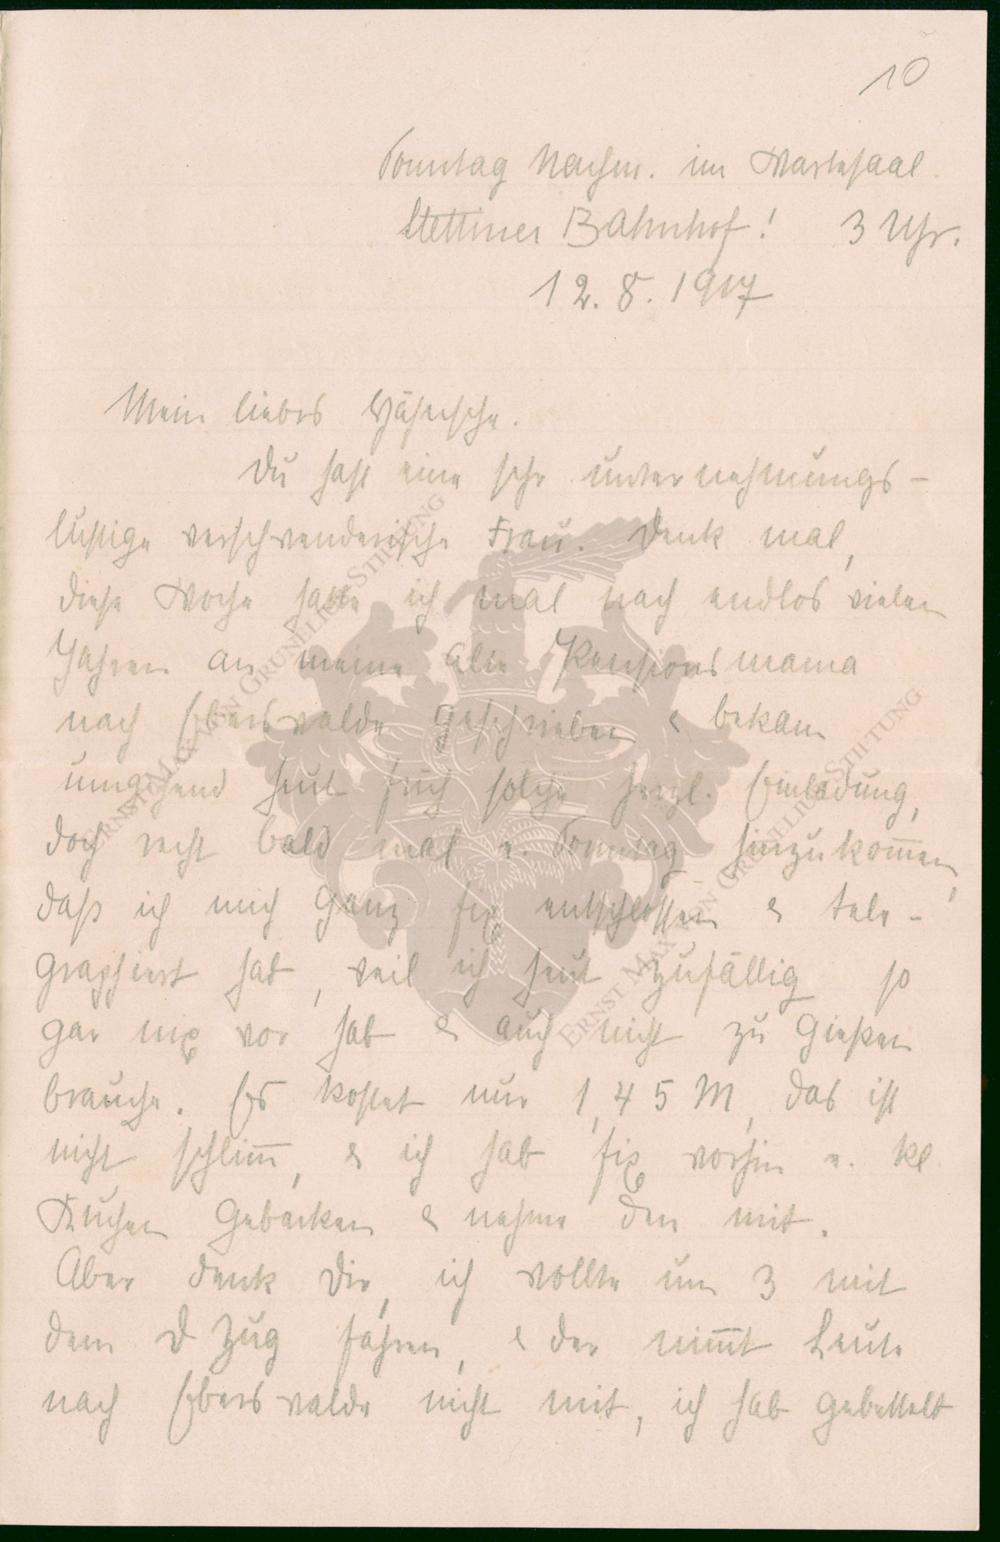 10
Sonntag Nachm. im Wartesaal
Stettiner Bahnhof! 3 Uhr.
12. 8. 1917
Mein liebes
Du hast eine sehr unternehmungs-
lustige verschwenderische Frau. Denk mal,
diese Woche hatte ich mal nach endlos vielen
Jahren an meine alte Pensionsmama
nach Eberswalde geschrieben & bekam
umgehend heut früh solche herzl. Einladung,
doch recht bald mal e. Sonntag hinzukom̅en,
daß ich mich ganz fix entschlossen & tele-
graphiert hab, weil ich heut zufällig so
gar nix vor hab & auch nicht zu gießen
brauche. Es kostet nur 1,45 M, das ist
nicht schlim̅, & ich hab fix vorhin e. kl.
Kuchen gebacken & nehme den mit.
Aber denk Dir, ich wollte um 3 mit
dem D Zug fahren, & der nim̅t Leute
nach Eberswalde nicht mit, ich hab gebettelt
ERNST MAX VON GRUNELIUS STIFTUNG
ERNST MAX VON GRUNELIUS STIFTUNG